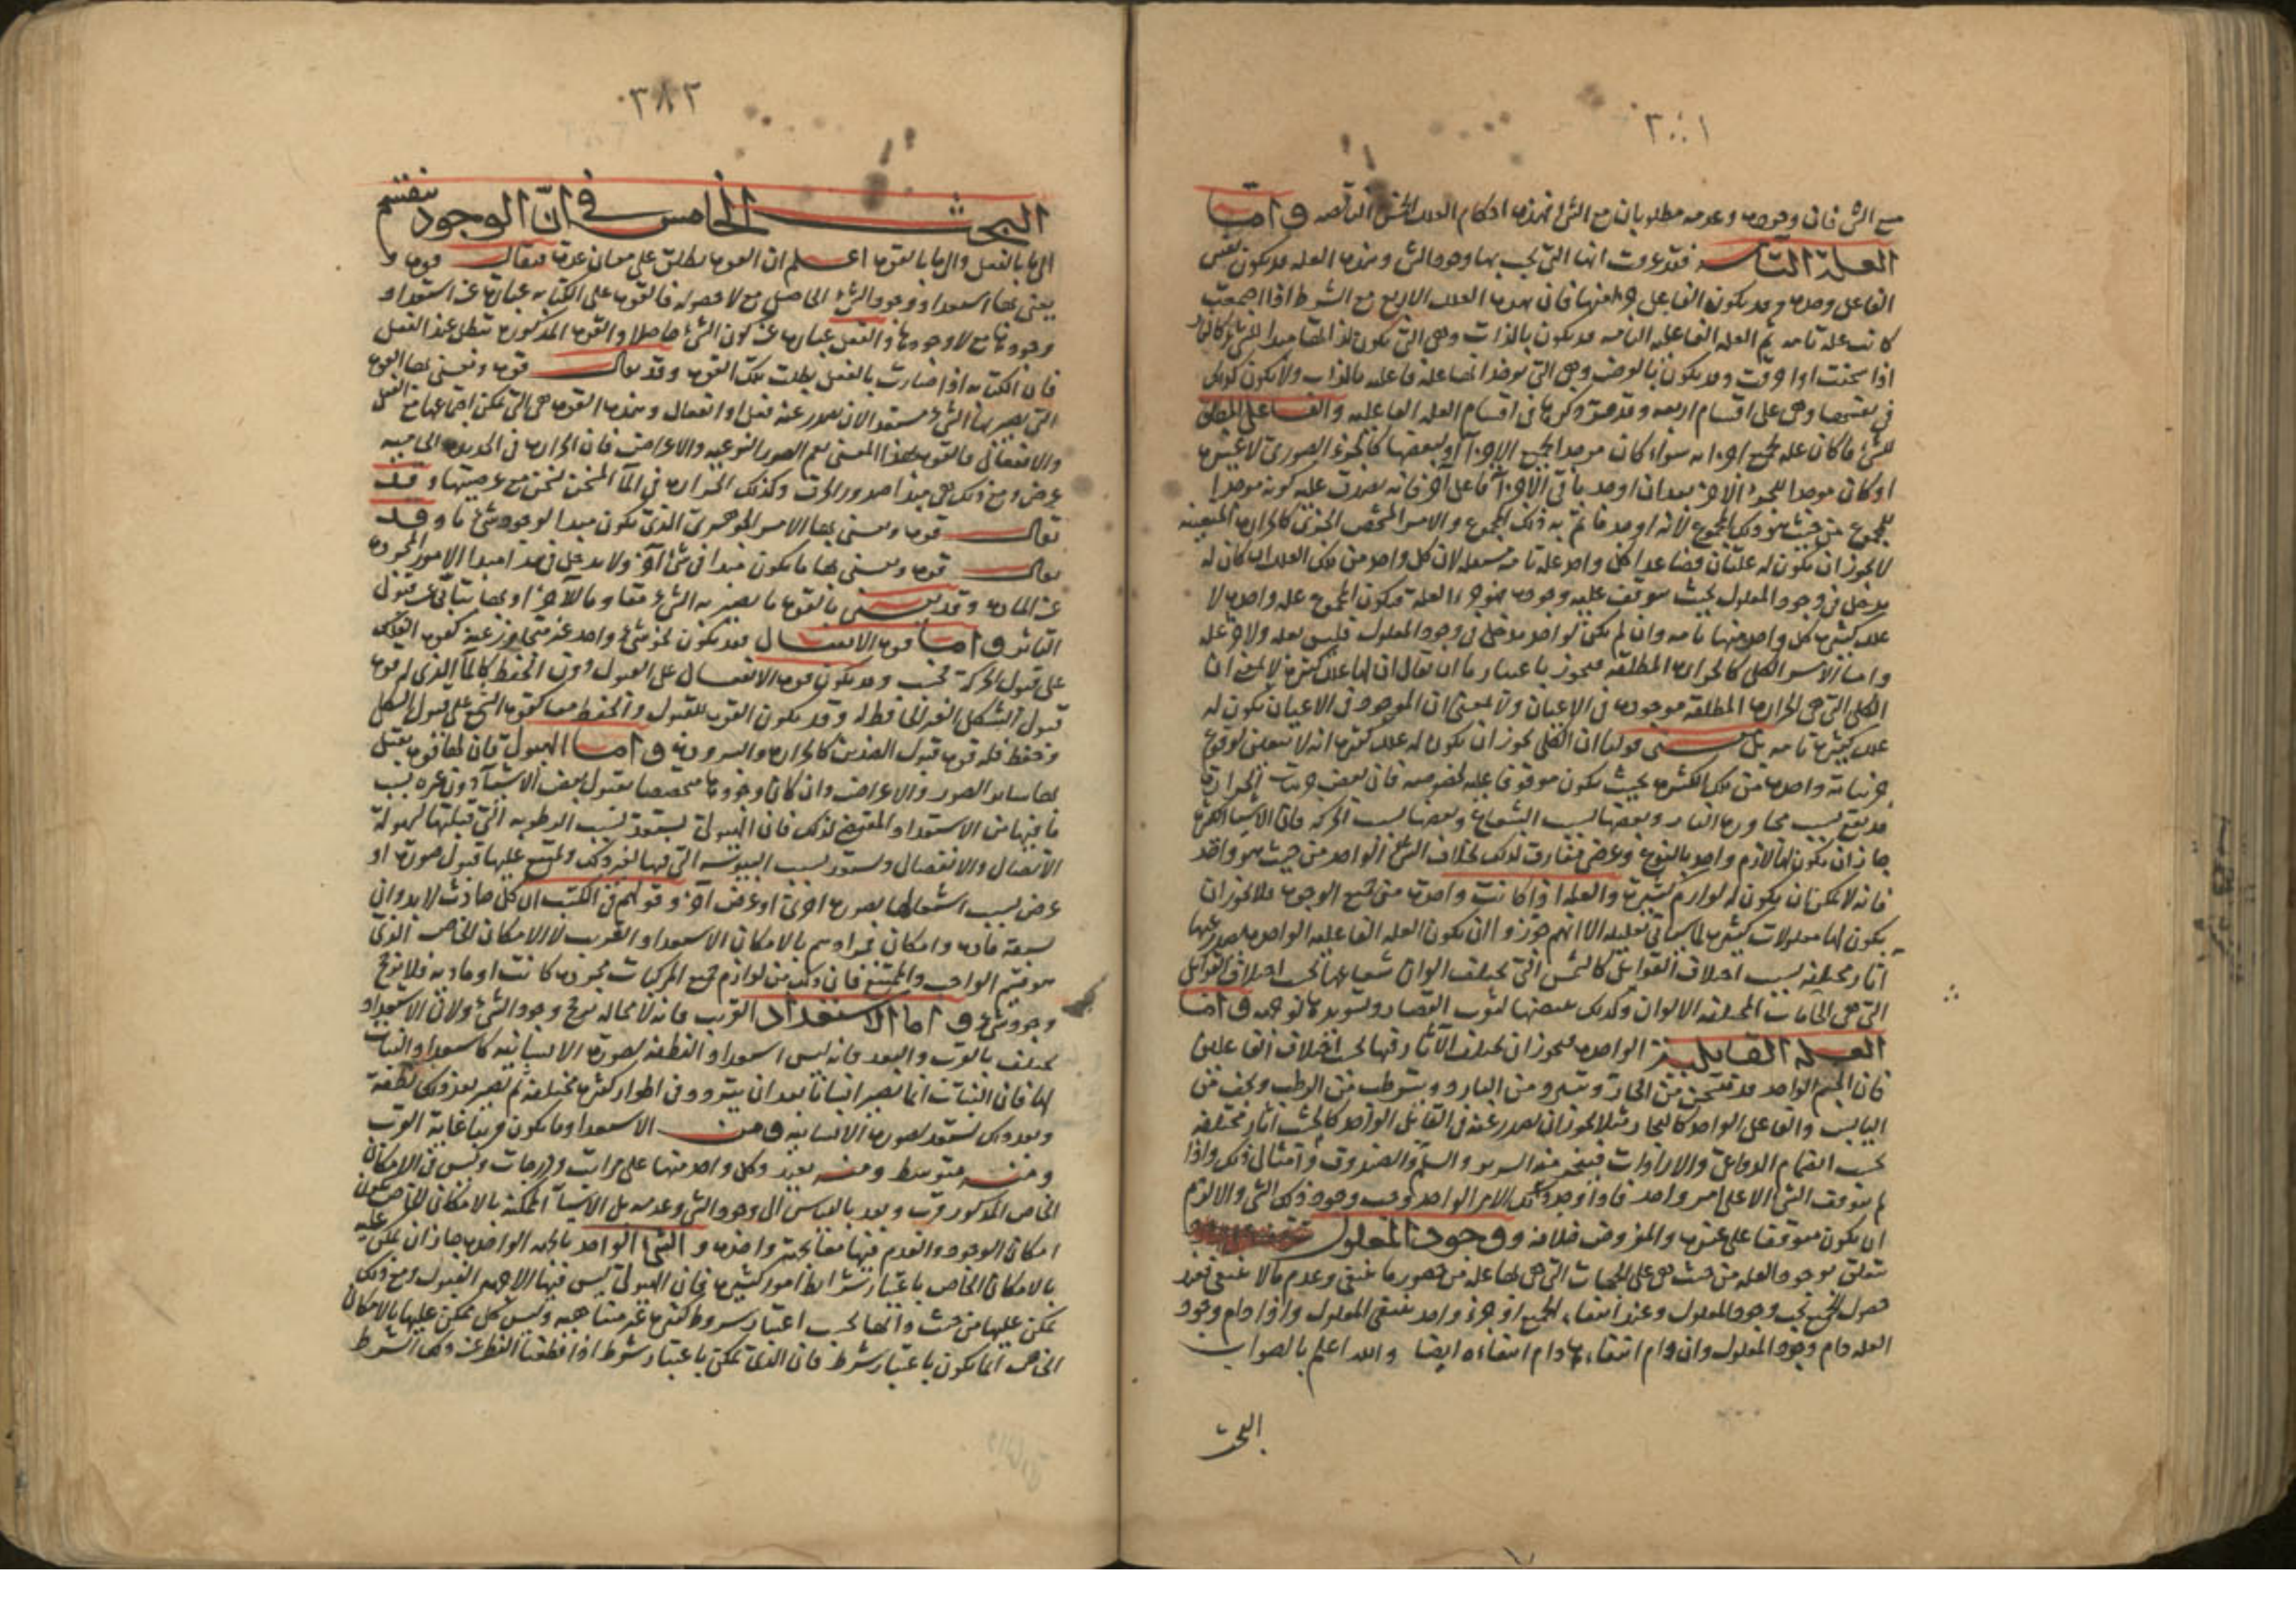 مع الشئ فان وجودها وعدمه مطلوبان مع الشئ فهذه احكام العلل الخمس الناقصة واما
العلة التامة فقد عرفت انها التى يجب بها وجود الشئ وهذه العلة قد يكون نفس
الفاعل وحده وقد يكون الفاعل جزء منها فان هذه العلل الاربع مع الشرط اذا اجتمعت
كانت علة تامة ثم العلة الفاعلية التامة قد يكون بالذات وهى التى يكون لذاتها مبدا للشئ كالنار
اذا سخنت او احرقت وقد يكون بالعرض وهى التى يؤخذ لها علة فاعلة بالذات ولا يكون كذلك
فى نفسها وهى على اقسام اربعة وقد مر ذكرها فى اقسام العلة الفاعلية والفاعل المطلق
للشئ ما كان علة لجميع اجزائه سواء كان موجدا لجميع الاجزاء او بعضها كالجزء الصورى لا غير
او كان موجدا للجزء الاخر بعد ان اوجد باقى الاجزاء فاعل آخر فانه يصدق عليه كونه موجدا
للمجموع من حيث هو ذلك المجموع لانه اوجد ما تم به ذلك المجموع والامر الشخصى الجزئى كالحرارة المتعينة
لا يجوز ان يكون له علتان فصاعدا كل واحد علة تامة مستقلة لان كل واحد من تلك العلل ان كان له
مدخل فى وجود المعلول بحيث يتوقف عليه وجوده فهو جزء العلة فيكون المجموع علة واحدة لا
علل كثيرة كل واحد منها تامة وان لم يكن لواحد مدخل فى وجود المعلول فليس بعلة ولا جزء علة
واما الامر الكلى كالحرارة المطلقة فيجوز باعتبار ما ان يقال ان لها عللا كثيرة لا بمعنى ان
الكلى التى هى الحرارة المطلقة موجودة فى الاعيان ولا بمعنى ان الموجود فى الاعيان يكون له
علل كثيرة تامة بل معنى قولنا ان الكلى يجوز ان يكون له علل كثيرة انه لا يتعين لوقوع
جزئياته واحدة من تلك الكثيرة بحيث يكون موقوفا عليه لخصوصه فان بعض جزئيات الحرارة
قد يقع بسبب مجاورة النار وبعضها بسبب الشعاع وبعضها بسبب الحركة فان الاشياء الكثيرة
جاز ان يكون لها لازم واحد بالنوع وعرض مفارق كذلك بخلاف الشئ الواحد من حيث هو واحد
فانه لا يمكن ان يكون له لوازم كثيرة والعلة اذا كانت واحدة من جميع الوجوه فلا يجوز ان
يكون لها معلولات كثيرة لما سيأتى تعليله الا انهم جوزوا ان يكون العلة الفاعلية الواحدة يصدر عنها
آثار مختلفة بسبب اختلاف القوابل كالشمس التى يختلف الوان شعاعها بحسب اختلاف القوابل
التى هى الجامات المختلفة الالوان وكذلك تبييضها لثوب القصار وتسويدها لوجهه واما
العلة القابلية الواحدة فيجوز ان يختلف الآثار فيها بحسب اختلاف الفاعلين
فان الجسم الواحد قد يتسخن من الحار ويتبرد من البارد ويترطب من الرطب ويجف من
اليابس والفاعل الواحد كالنجار مثلا يجوز ان يصدر عنه فى القابل الواحد كالخشب آثار مختلفة
بحسب انضمام الدواعى والارادات فينجر منه السرير والسلم والصندوق وامثال ذلك واذا
لم يتوقف الشئ الا على امر واحد فاذا وجد ذلك الامر الواحد وجب وجود ذلك الشئ والا لزم
ان يكون متوقفا على غيره والمفروض خلافه ووجود المعلول
يتعلق بوجود العلة من حيث هى على الجهات التى هى بها علة من حضور ما ينبغى وعدم ما لا ينبغى فعند
حصول الجميع يجب وجود المعلول وعند انتفاء الجميع او جزء واحد ينتفى المعلول واذا دام وجود
العلة دام وجود المعلول وان دام انتفاءها دام انتفاءه ايضا والله اعلم بالصواب
البحث
٣٨٢
البحث الخامس فى ان الوجود ينقسم
الى ما بالفعل والى ما بالقوة اعلم ان القوة يطلق على معان عدة فيقال قوة و
يعنى بها استعداد وجود الشئ الحاصل مع لا حصوله فالقوة على الكتابة عبارة عن استعداد
وجودها مع لا وجودها والفعل عبارة عن كون الشئ حاصلا والقوة المذكورة تبطل عند الفعل
فان الكتابة اذا صارت بالفعل بطلت تلك القوة وقد يقال قوة ويعنى بها القوة
التى يصير بها الشئ مستعدا لان يصدر عنه فعل او انفعال وهذه القوة هى التى يمكن اجتماعها مع الفعل
والانفعال فالقوة بهذا المعنى يعم الصور النوعية والاعراض فان الحرارة فى الحديدة الحامية
عرض ومع ذلك هى مبدا صدور الحرق وكذلك الحرارة فى الماء المسخن تسخن مع عرضيتها وقد
يقال قوة ويعنى بها الامر الجوهرى الذى يكون مبدا لوجود شئ ما وقد
يقال قوة ويعنى بها ما يكون مبدا فى شئ آخر ولا يدخل فى هذا مبدا الامور المجردة
عن المادة وقد يعنى بالقوة ما يصير به الشئ مقاوما لآخر او بها يتأبى عن قبول
التاثر واما قوة الانفعال فقد يكون نحو شئ واحد غير متجاوز عنه كقوة الفلك
على قبول الحركة فحسب وقد يكون قوة الانفعال على القبول دون الحفظ كالماء الذى له قوة
قبول الشكل الغير الحافظ له وقد يكون القوة للقبول والحفظ معا كقوة الشمع على قبول الشكل
وحفظ فله قوة قبول الضدين كالحرارة والبرودة واما الهيولى فان لها قوة يقبل
بها سائر الصور والاعراض وان كان وجودها مخصصا بقبول بعض الاشياء دون غيره بسبب
ما فيها من الاستعداد المقتضى لذلك فان الهيولى يستعد بسبب الرطوبة التى قبلتها لسهولة
الاتصال والانفصال ويستعد بسبب اليبوسة التى فيها لغير ذلك ويمتنع عليها قبول صورة او
عرض بسبب اشتغالها بصورة اخرى او عرض آخر وقولهم فى الكتب ان كل حادث لا بد وان
يسبقه مادة وامكان فمرادهم بالامكان الاستعداد القريب لا الامكان الخاص الذى
هو قسيم الواجب والممتنع فان ذلك من لوازم جميع المركبات مجردة كانت او مادية فلا يرجح
وجود شئ واما الاستعداد القريب فانه لا محالة يرجح وجود الشئ ولان الاستعداد
يختلف بالقرب والبعد فانه ليس استعداد النطفة لصورة الانسانية كاستعداد النبات
لها فان النبات انما يصير انسانا بعد ان يتردد فى اطوار كثيرة مختلفة ثم يصير بعد ذلك نطفة
وبعد ذلك يستعد لصورة الانسانية ومن الاستعداد ما يكون قريبا غاية القرب
ومنه متوسط ومنه بعيد وكل واحد منها على مراتب ودرجات وليس فى الامكان
الخاص المذكور قرب وبعد بالقياس الى وجود الشئ وعدمه بل الاشياء الممكنة بالامكان الخاص يكون
امكان الوجود والعدم فيها معا بجهة واحدة والشئ الواحد بالجهة الواحدة جاز ان يمكن عليه
بالامكان الخاص باعتبار شرائط امور كثيرة فان الهيولى ليس فيها الا جهة القبول ومع ذلك
يمكن عليها من حيث ذاتها بحسب اعتبار شروط كثيرة غير متناهية وليس كل ممكن عليها بالامكان
الخاص انما يكون باعتبار شرط فان الذى يمكن باعتبار شرط اذا قطعنا النظر عن ذلك الشرط